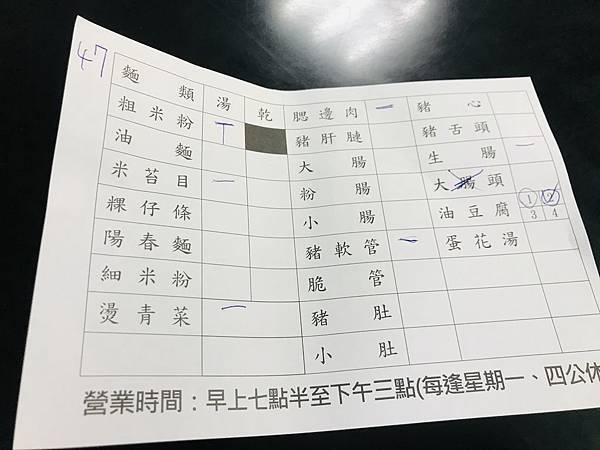 47
麵類 湯 乾 腮邊肉 一 豬心
粗米粉 丅 豬肝腱 豬舌頭
油麵 大腸 生腸 一
米苔目 一 粉腸 大腸頭
粿仔條 小腸 油豆腐 ① ② 3 4
陽春麵 豬軟管 一 蛋花湯
細米粉 脆管
燙青菜 一 豬肚
小肚
營業時間：早上七點半至下午三點(每逢星期一、四公休